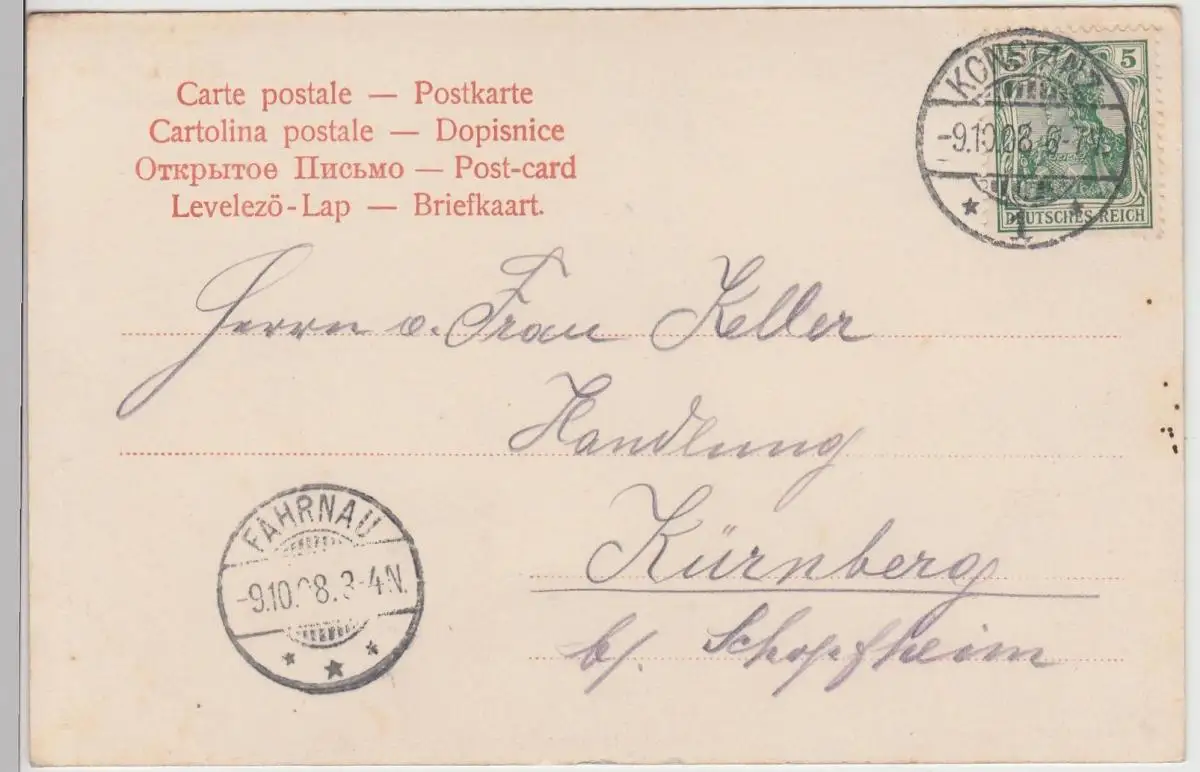 Carte postale — Postkarte
Cartolina postale — Dopisnice
Открытое Письмо — Post-card
Levelezö-Lap — Briefkaart.
KONSTANZ
-9.10.08. 6-7
1
5
DEUTSCHES REICH
Herrn u. Frau Keller
Handlung
Kürnberg
b/. Schopfheim
FAHRNAU
-9.10.08. 3-4N.